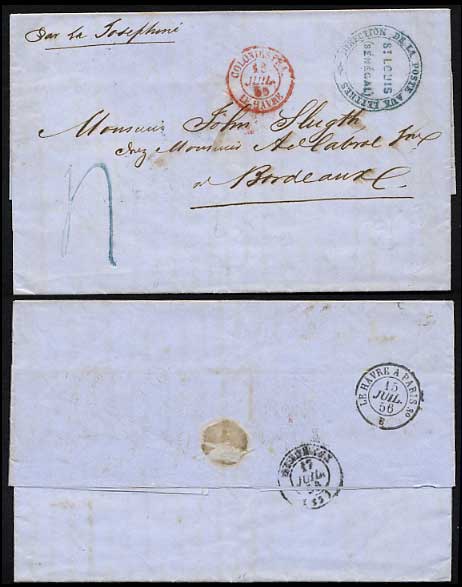 par la Joséphine
COLONIES F.
15
JUIL.
56
LE HAVRE
DIRECTION DE LA POSTE AUX LETTRES
ST LOUIS
SÉNÉGAL
Monsieur John
chez Monsieur A. Cabrol Jne
à Bordeaux
LE HAVRE A PARIS
15
JUIL.
56
BORDEAUX
17
JUIL.